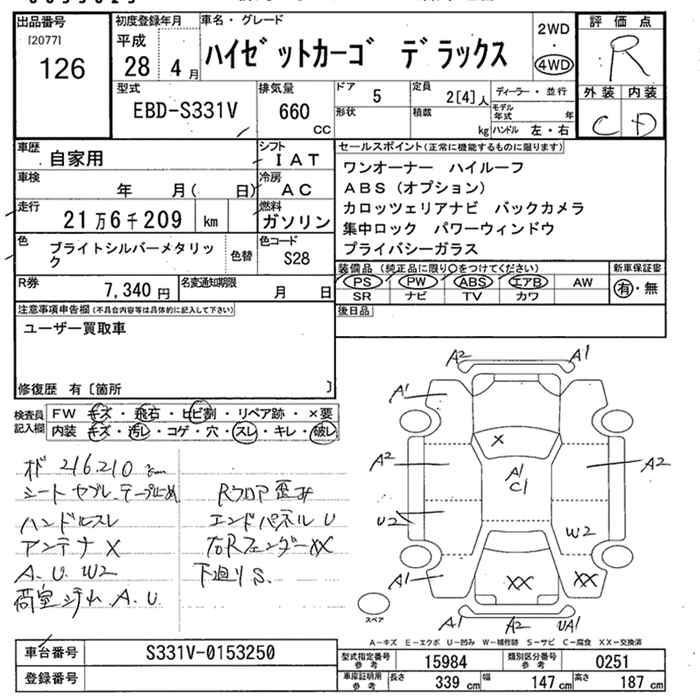 出品番号
[2077]
126
初度登録年月
平成
28年 4月
車名・グレード
ハイゼットカーゴ デラックス
2WD
・
4WD
評価点
R
外装 内装
C D
型式
EBD-S331V
排気量
660
CC
ドア
5
定員
2[4]人
ディーラー・並行
形状
積載
kg
モデル年式 年
ハンドル 左・右
車歴
自家用
シフト
IAT
車検
年 月( 日)
冷房
AC
走行
21万6千209 km
燃料
ガソリン
色
ブライトシルバーメタリック
色替
色コード
S28
R券
7,340円
名変通知期限
月 日
セールスポイント(正常に機能するものに限ります)
ワンオーナー ハイルーフ
ABS(オプション)
カロッツェリアナビ バックカメラ
集中ロック パワーウィンドウ
プライバシーガラス
装備品 (純正品に限り○をつけてください)
PS PW ABS エアB AW
SR ナビ TV カワ
新車保証書
有・無
後日品
注意事項申告欄(不具合内容等は具体的に記入して下さい)
ユーザー買取車
修復歴 有〔箇所 〕
検査員記入欄
FW キズ・飛石・ヒビ割・リペア跡・×要
内装 キズ・汚レ・コゲ・穴・スレ・キレ・破レ
オド 216210 km
シート ヤブレ、テープ止め
ハンドルスレ
アンテナ X
A.U.W2
荷室シミ A.U
Rフロア歪み
エンドパネル U
右RフェンダーXX
下廻りS.
A2 A1
A1
X
A2 A1 C1 A2
U2 W2
A1 XX XX
A1 A2 UA1
スペア
A-キズ E-エクボ U-凹み W-補修跡 S-サビ C-腐食 XX-交換済
車台番号
S331V-0153250
登録番号
型式指定番号 参考
15984
類別区分番号 参考
0251
車庫証明用 参考
長さ 339 cm
幅 147 cm
高さ 187 cm